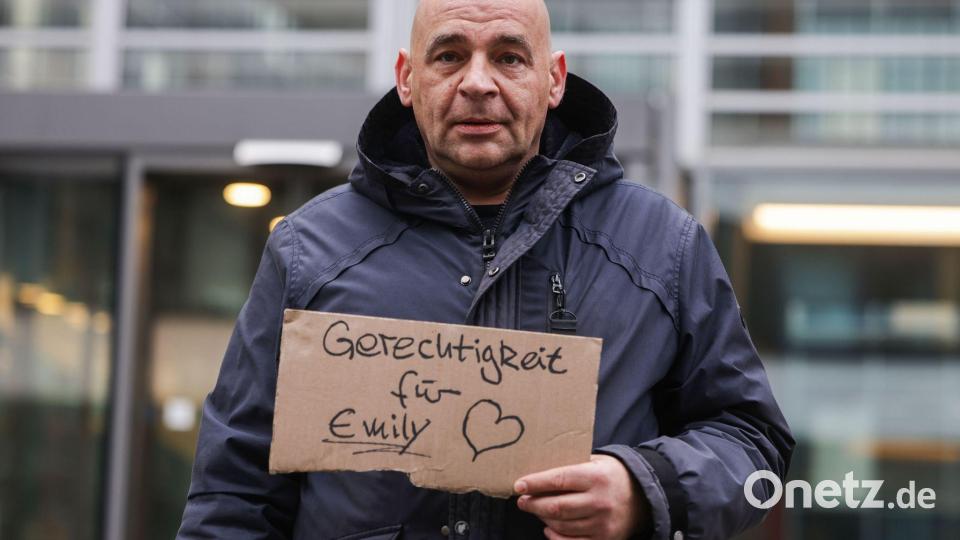 Gerechtigkeit
für
Emily
Onetz.de